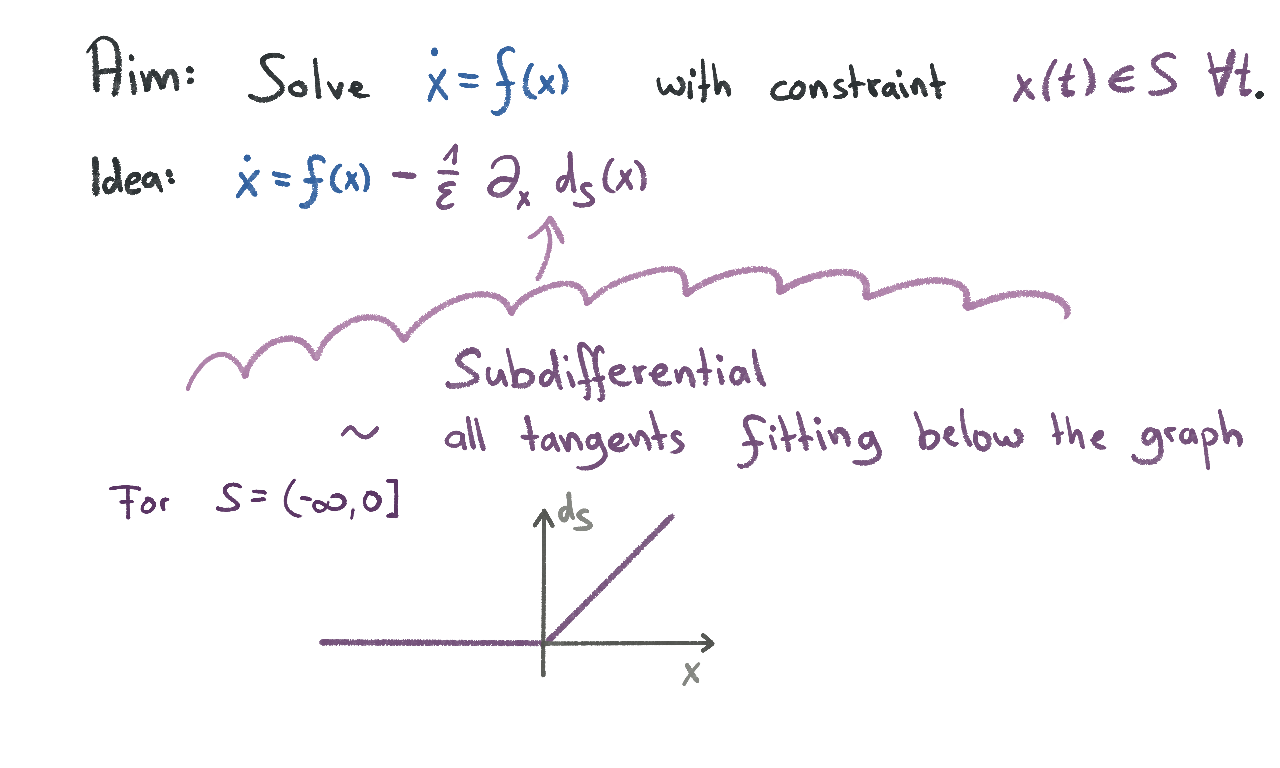 Aim: Solve ẋ = f(x) with constraint x(t) ∈ S ∀t.
Idea: ẋ = f(x) - 1/ε ∂ₓ d_S(x)
Subdifferential
~ all tangents fitting below the graph
For S = (-∞, 0]
d_S
x